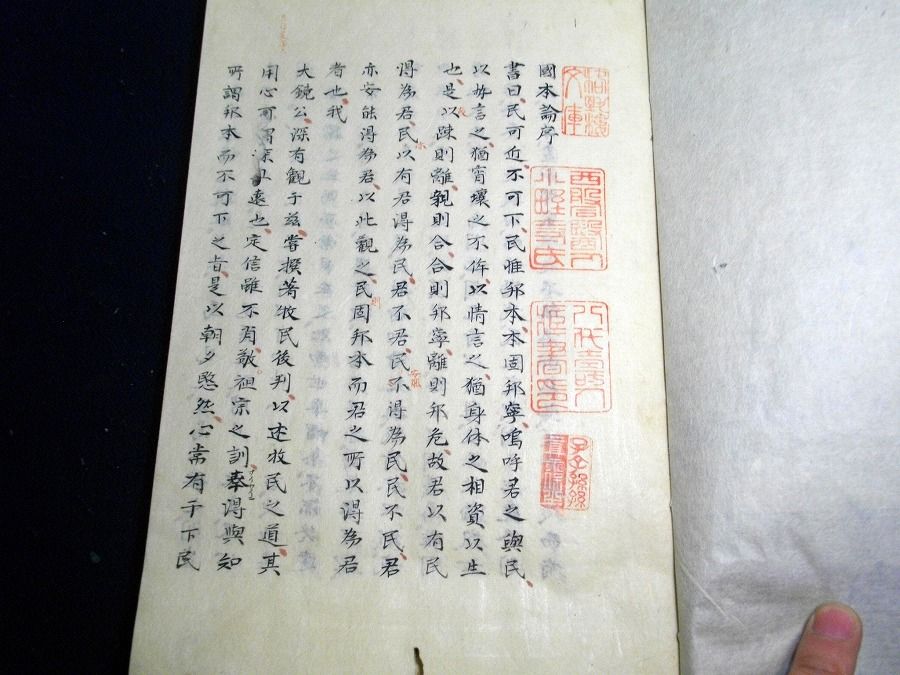 國本論序
書曰民可近不可下民惟邦本本固邦寧嗚呼君之與民
以勢言之猶霄壤之不侔以情言之猶身体之相資以生
也是以疎則離親則合合則邦寧離則邦危故君以有民
得為君民以有君得為民君不君民不得為民民不民君
亦安能得為君以此觀之民固邦本而君之所以得為君
者也我
大鏡公深有觀于茲嘗撰著牧民後判以述牧民之道其
用心可謂深且遠也定信雖不肖敬祖宗之訓奉得與知
所謂邦本而不可下之旨是以朝夕愍然心常有于下民
文庫